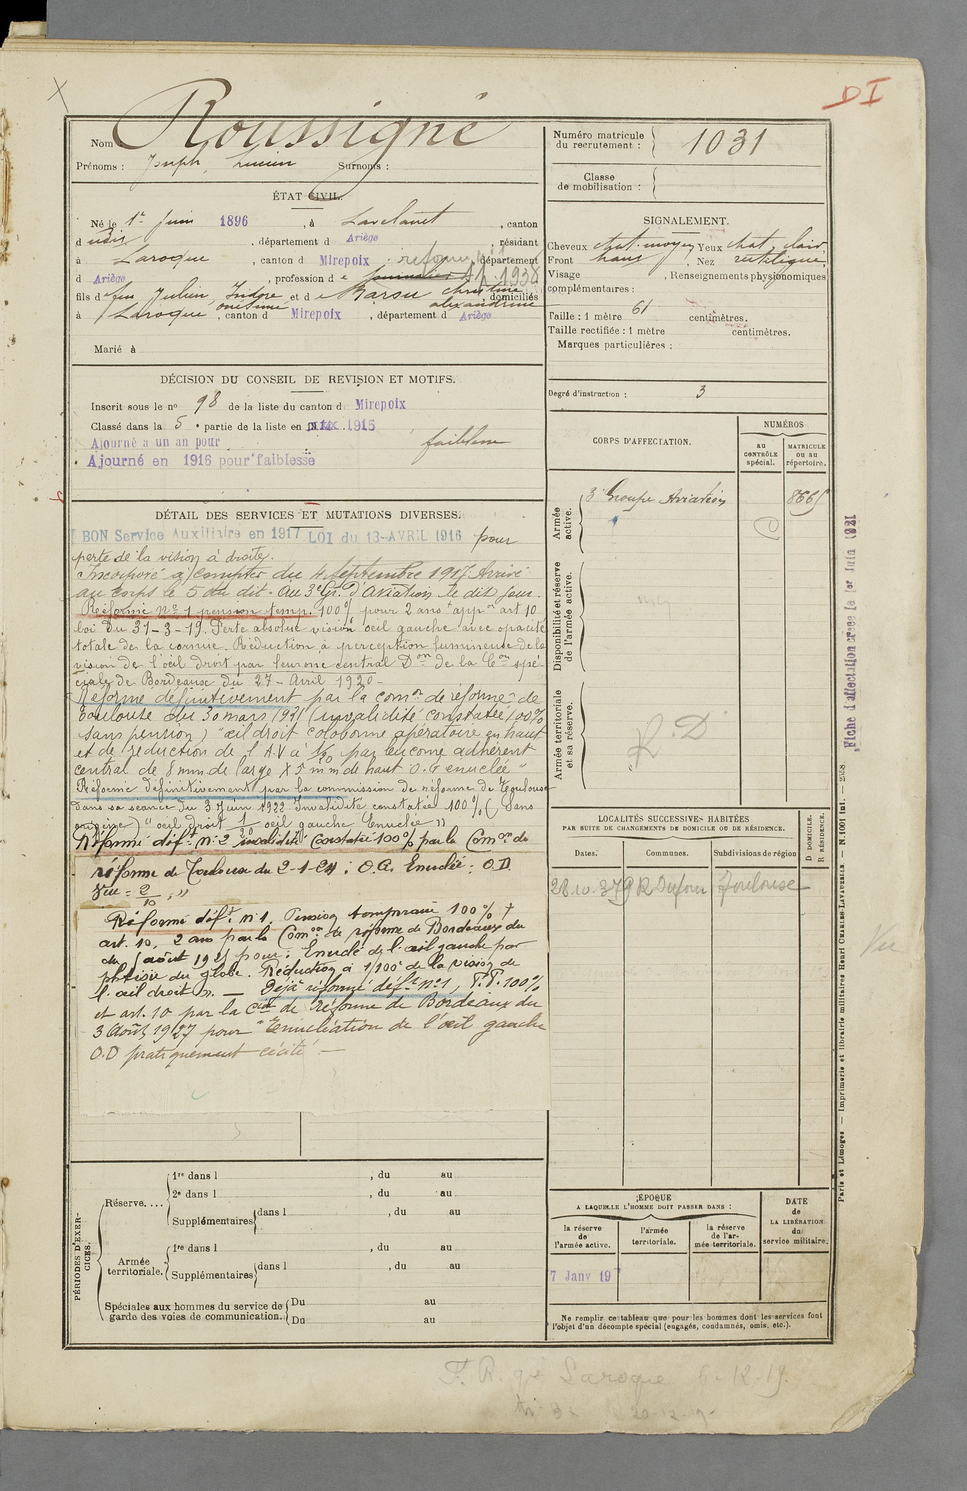 DI
Nom Roussigné
Prénoms : Joseph Lucien Surnoms :
ÉTAT CIVIL.
Né le 1er Juin 1896, à Lavelanet, canton
d udis, département d Ariège, résidant
à Laroque, canton d Mirepoix, département
d Ariège, profession d e journalier 1938
fils de feu Julien Isidore et d e Marsu Christine, domiciliés
Alexandrine
à Laroque, canton d Mirepoix, département d Ariège
Marié à
DÉCISION DU CONSEIL DE REVISION ET MOTIFS.
Inscrit sous le no 98 de la liste du canton d Mirepoix
Classé dans la 5e partie de la liste en 1915
Ajourné a un an pour faiblesse
Ajourné en 1916 pour faiblesse
DÉTAIL DES SERVICES ET MUTATIONS DIVERSES.
BON Service Auxiliaire en 1917 LOI du 13-AVRIL 1916 pour
perte de la vision à droite.
Incorporé à compter du 4 Septembre 1917 Arrivé
au corps le 5 du dit - Au 3e Gr. d'Aviation le dit jour.
Réformé no 1 pension temp. 100% pour 2 ans appn art 10
loi du 31-3-19. Perte absolue vision oeil gauche avec opacité
totale de la cornée. Réduction à perception lumineuse de la
vision de l'oeil droit par leucome central Don de la Con spé-
ciale de Bordeaux du 27 - Avril 1920 -
Réformé définitivement par la comon de réforme de
Toulouse du 30 mars 1921 (invalidité constatée 100%
sans pension) "œil droit colobome opératoire en haut
et de réduction de l'A.V à 1/10 par leucome adhérent
central de 8 mm de large X 5 mm de haut O.G enuclée"
Réformé définitivement par la commission de réforme de Toulouse
dans sa séance du 3 Juin 1922 Invalidité constatée 100% (sans
origine) "oeil droit 1/20 oeil gauche Enuclée"
Réformé déft no 2 invalidité Constatée 100% par la Comon de
réforme de Toulouse du 2-1-24 : O.G. Enuclée : O.D.
Vue = 2/10, "
Réformé déft no 1. Pension temporaire 100% +
art. 10, 2 ans par la Comon de réforme de Bordeaux du
août 192 pour : Enuclé de l'œil gauche par
phtisie du globe. Réduction à 1/100e de la vision de
l'œil droit ". — Déjà réformé déft no 1, P.T. 100%
et art. 10 par la Con de réforme de Bordeaux du
3 Août 1927 pour "Enucléation de l'œil gauche
O.D pratiquement cécité" —
PÉRIODES D'EXER-
CICES.
Réserve....
1re dans l , du au
2e dans l , du au
Supplémentaires dans l , du au
Armée
territoriale.
1re dans l , du au
Supplémentaires dans l , du au
Spéciales aux hommes du service de
garde des voies de communication.
Du au
Du au
Numéro matricule
du recrutement : 1031
Classe
de mobilisation :
SIGNALEMENT.
Cheveux chat. moyen Yeux chat. clair
Front haut, Nez rectiligne,
Visage , Renseignements physionomiques
complémentaires :
Taille : 1 mètre 61 centimètres.
Taille rectifiée : 1 mètre centimètres.
Marques particulières :
Degré d'instruction : 3
CORPS D'AFFECTATION.
NUMÉROS
AU
CONTRÔLE
spécial.
MATRICULE
OU AU
répertoire.
Armée
active.
3e Groupe Aviation 8665
Disponibilité et réserve
de l'armée active.
Armée territoriale
et sa réserve.
R.D
LOCALITÉS SUCCESSIVES HABITÉES
PAR SUITE DE CHANGEMENTS DE DOMICILE OU DE RÉSIDENCE.
Dates. Communes. Subdivisions de région
D DOMICILE.
R RÉSIDENCE.
28.10.37 Toulouse
ÉPOQUE
A LAQUELLE L'HOMME DOIT PASSER DANS :
la réserve
de
l'armée active.
l'armée
territoriale.
la réserve
de l'ar-
mée territoriale.
DATE
de
LA LIBÉRATION
du
service militaire.
7 Janv 19
Ne remplir ce tableau que pour les hommes dont les services font
l'objet d'un décompte spécial (engagés, condamnés, omis, etc.).
Fiche d'affectation créée le 1er Juin 1921
Paris et Limoges. — Imprimerie et librairie militaires Henri CHARLES-LAVAUZELLE. — N. 1001 Int.
Vu
F. R. ge Laroque 6-12-19.